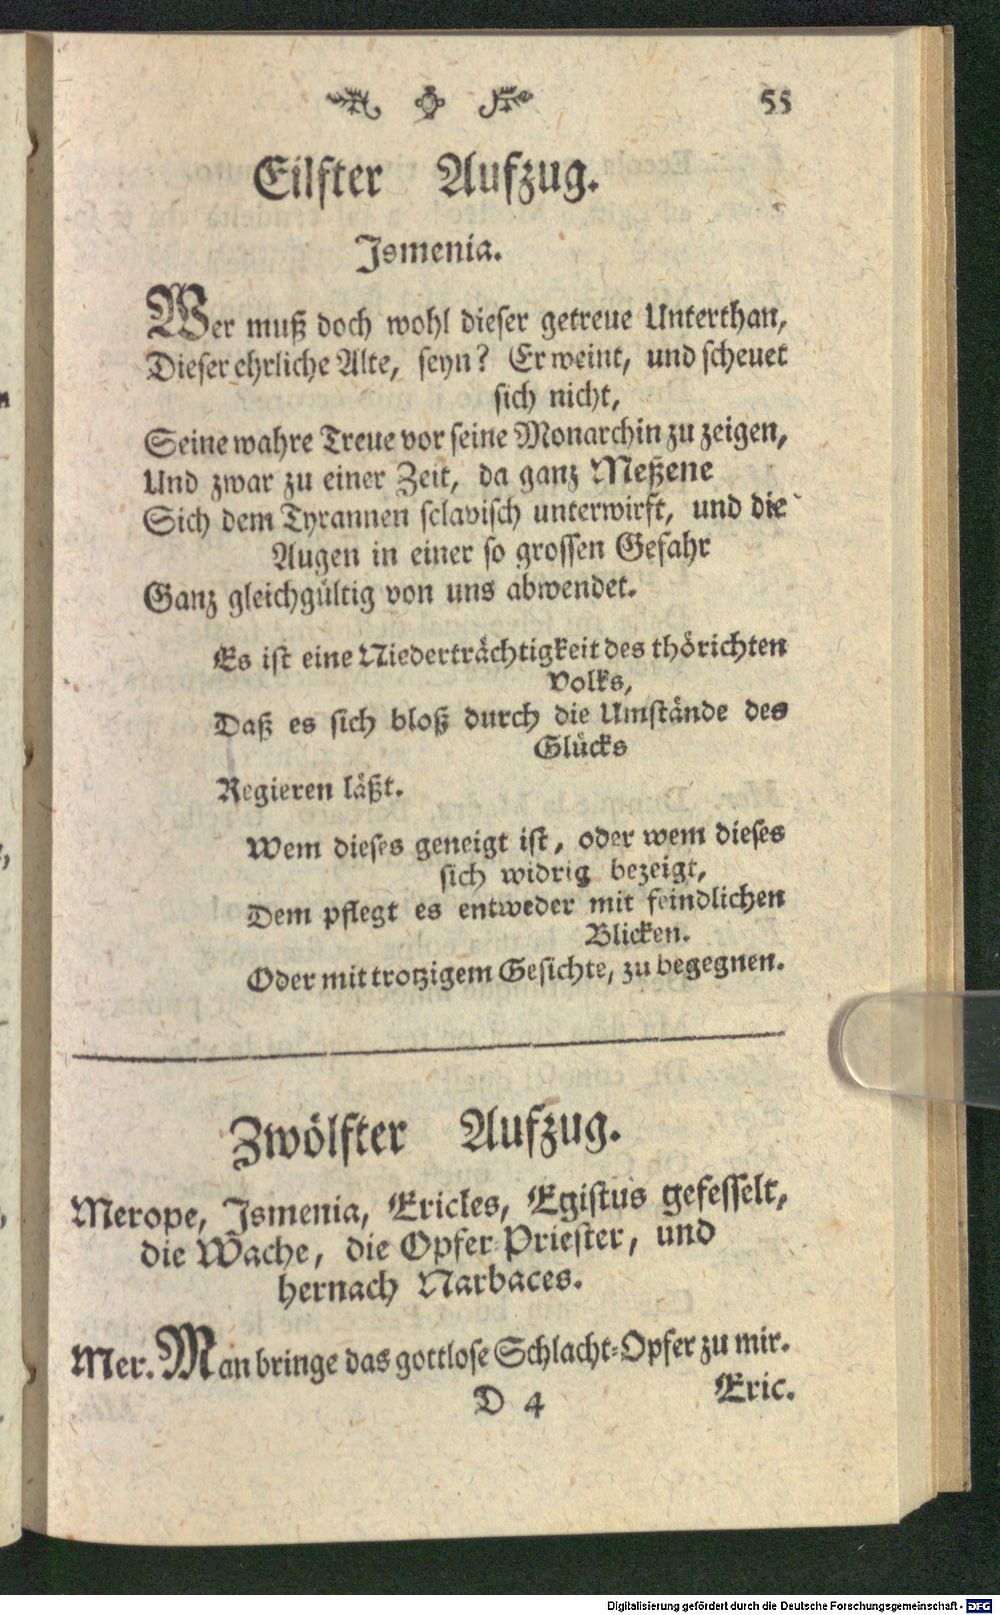 55
Eilfter Aufzug.
Ismenia.
Wer muß doch wohl dieser getreue Unterthan,
Dieser ehrliche Alte, seyn? Er weint, und scheuet
sich nicht,
Seine wahre Treue vor seine Monarchin zu zeigen,
Und zwar zu einer Zeit, da ganz Meßene
Sich dem Tyrannen sclavisch unterwirft, und die
Augen in einer so grossen Gefahr
Ganz gleichgültig von uns abwendet.
Es ist eine Niederträchtigkeit des thörichten
Volks,
Daß es sich bloß durch die Umstände des
Glücks
Regieren läßt.
Wem dieses geneigt ist, oder wem dieses
sich widrig bezeigt,
Dem pflegt es entweder mit feindlichen
Blicken.
Oder mit trotzigem Gesichte, zu begegnen.
Zwölfter Aufzug.
Merope, Ismenia, Ericles, Egistus gefesselt,
die Wache, die Opfer-Priester, und
hernach Narbaces.
Mer. Man bringe das gottlose Schlacht-Opfer zu mir.
D 4 Eric.
Digitalisierung gefördert durch die Deutsche Forschungsgemeinschaft - DFG